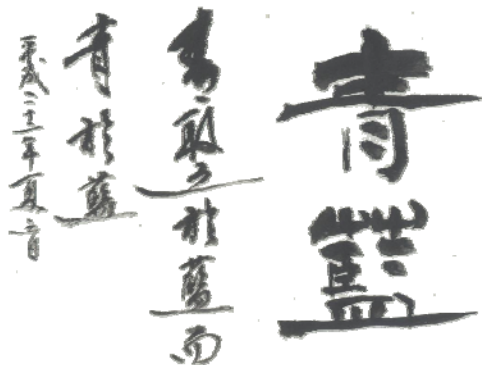 青藍
青取之於藍而
青於藍
平成二十二年夏吉日